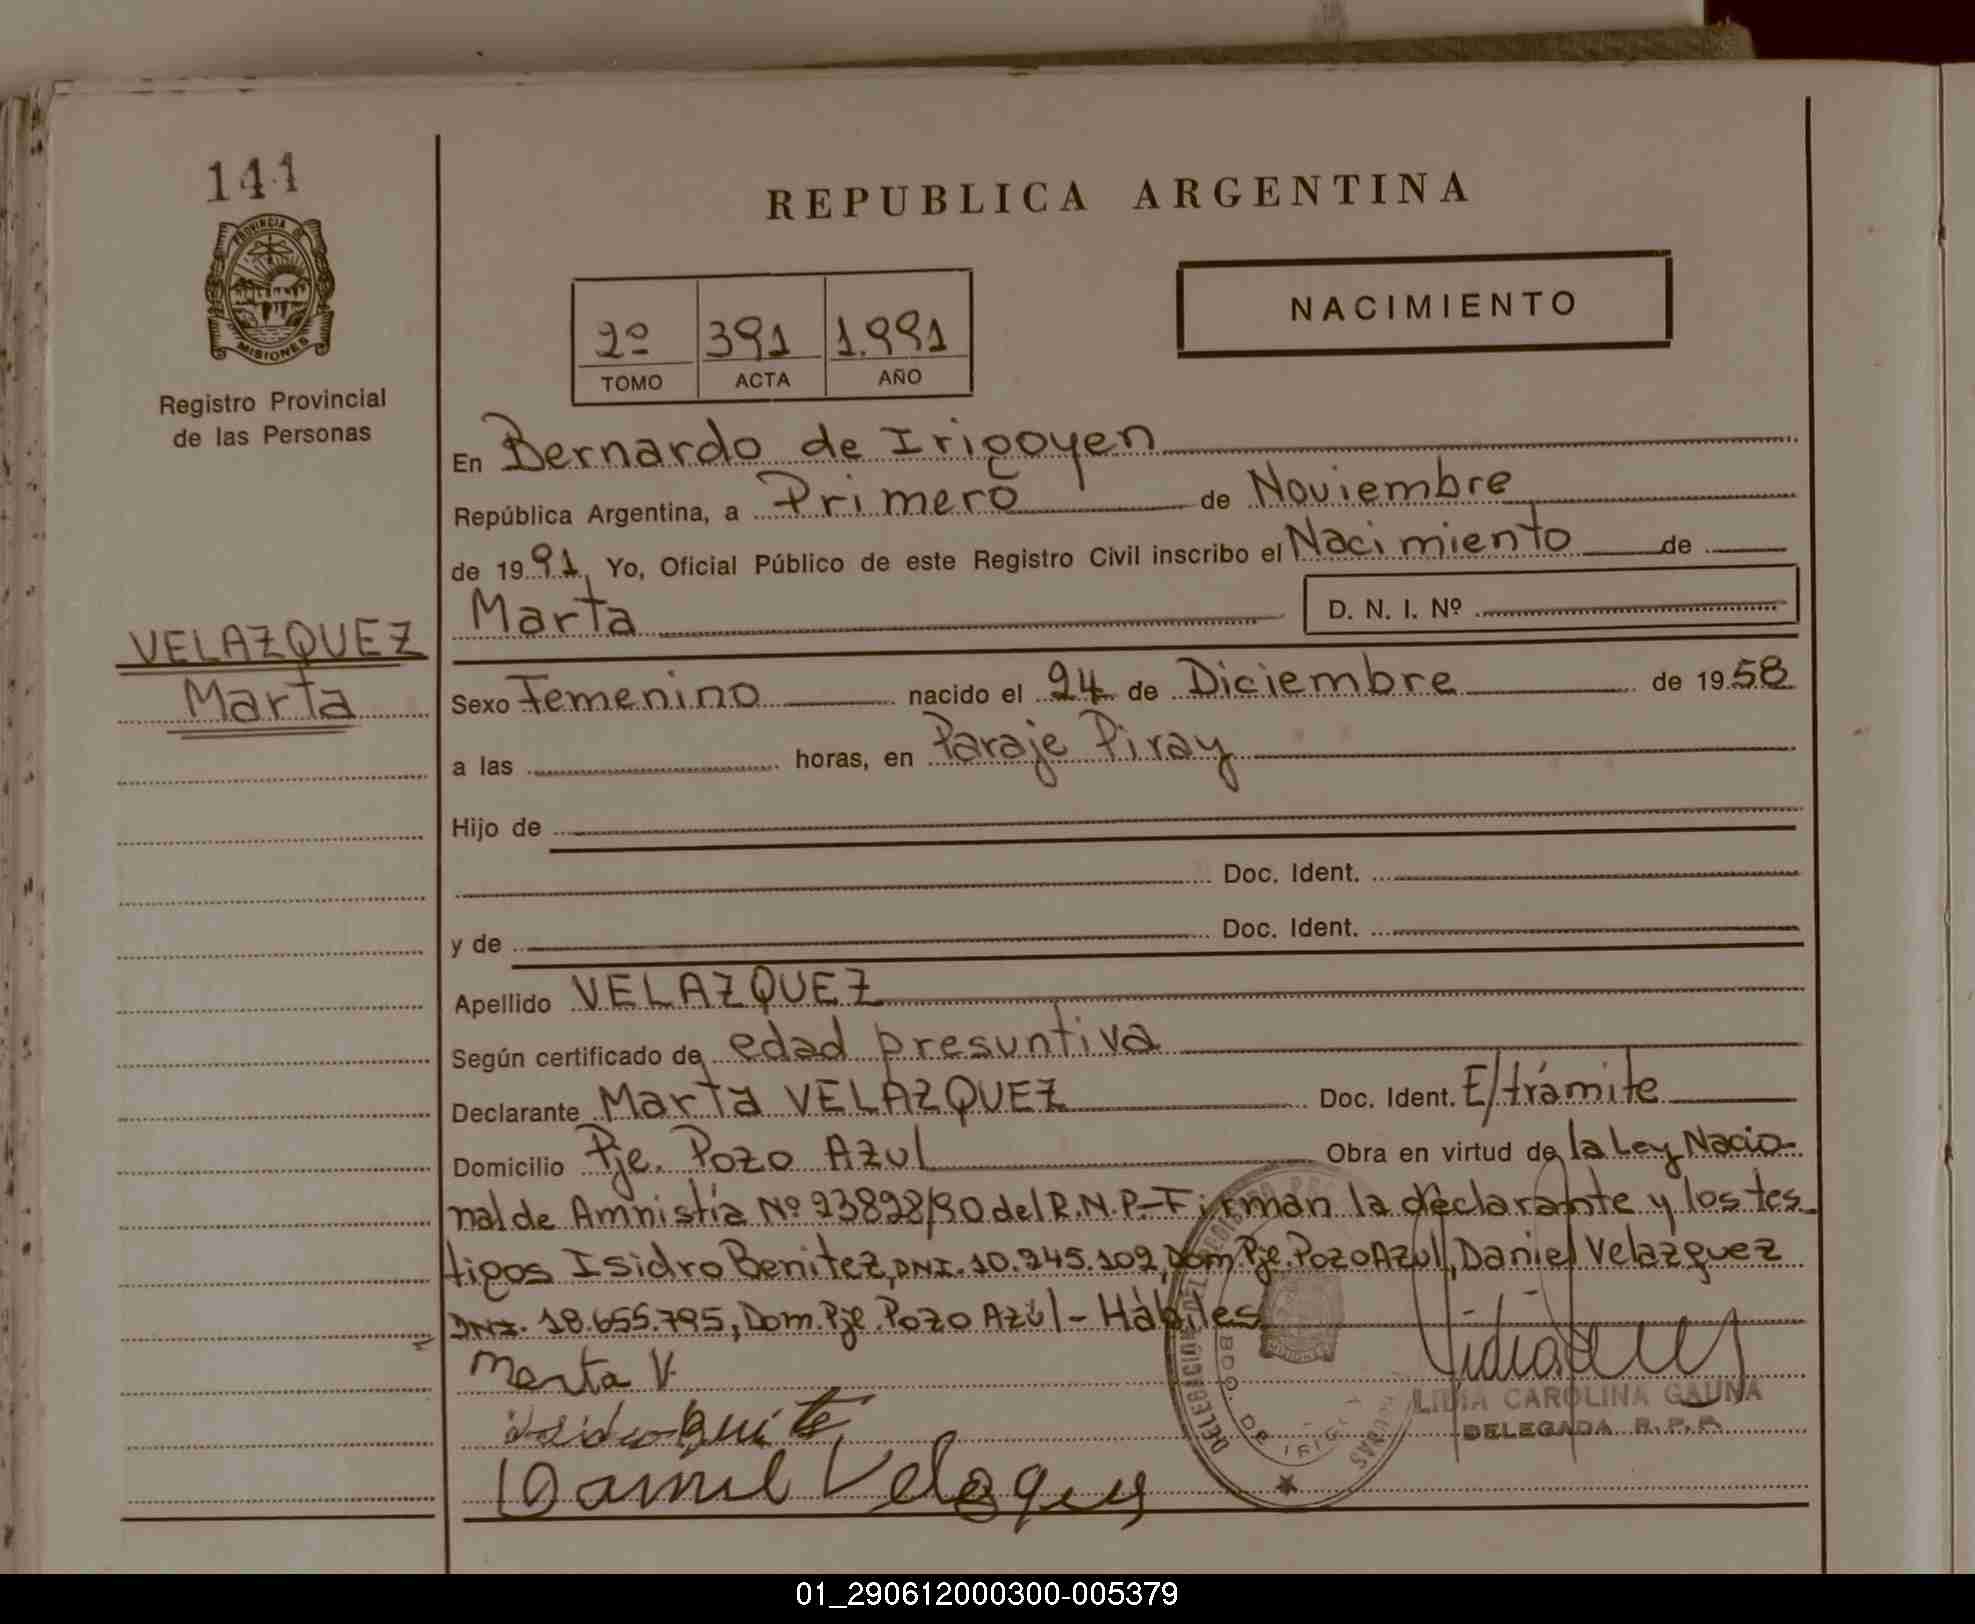 141
PROVINCIA DE
MISIONES
Registro Provincial
de las Personas
VELAZQUEZ
Marta
REPUBLICA ARGENTINA
2º 391 1.991
TOMO ACTA AÑO
NACIMIENTO
En Bernardo de Irigoyen
República Argentina, a Primero de Noviembre
de 1991, Yo, Oficial Público de este Registro Civil inscribo el Nacimiento de
Marta D. N. I. Nº
Sexo Femenino nacido el 24 de Diciembre de 1958
a las horas, en Paraje Piray
Hijo de
Doc. Ident.
y de Doc. Ident.
Apellido VELAZQUEZ
Según certificado de edad presuntiva
Declarante Marta VELAZQUEZ Doc. Ident. E/trámite
Domicilio Pje. Pozo Azul Obra en virtud de la Ley Nacio-
nal de Amnistía Nº 23828/90 del R.N.P.- Firman la declarante y los tes-
tigos Isidro Benitez, DNI. 10.245.102, Dom. Pje. Pozo Azul, Daniel Velazquez
DNI. 18.655.795, Dom. Pje. Pozo Azúl - Hábiles
Marta V.
Daniel Velazquez
LIDIA CAROLINA GAUNA
DELEGADA R. P. P.
01_290612000300-005379